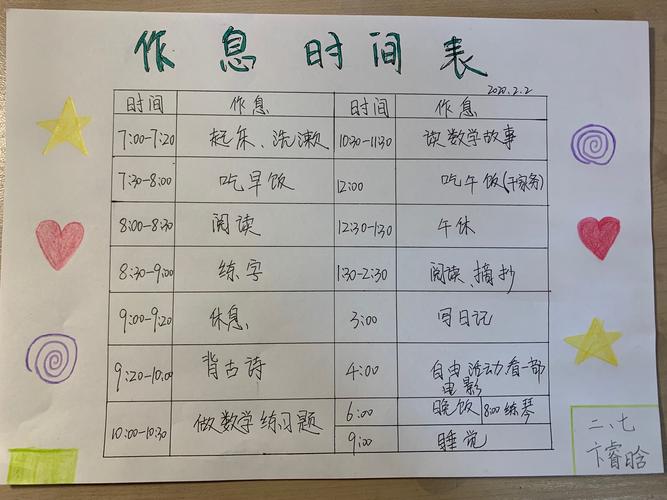 作息时间表
2020.2.2
时间 作息 时间 作息
7:00-7:20 起床、洗漱 10:30-11:30 读数学故事
7:30-8:00 吃早饭 12:00 吃午饭(干家务)
8:00-8:30 阅读 12:30-1:30 午休
8:30-9:00 练字 1:30-2:30 阅读、摘抄
9:00-9:20 休息、 3:00 写日记
9:20-10:00 背古诗 4:00 自由活动看一部
电影
10:00-10:30 做数学练习题 6:00 晚饭 8:00练琴
9:00 睡觉
二、七
卞睿晗